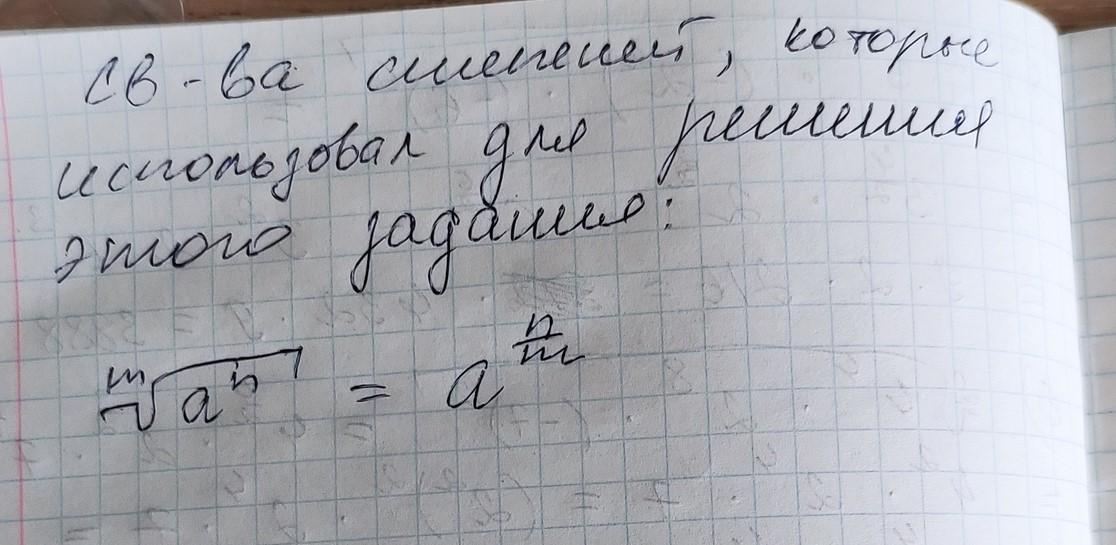 св-ва степеней, которые
использовал для решения
этого задания:
$\sqrt[m]{a^n} = a^{\frac{n}{m}}$